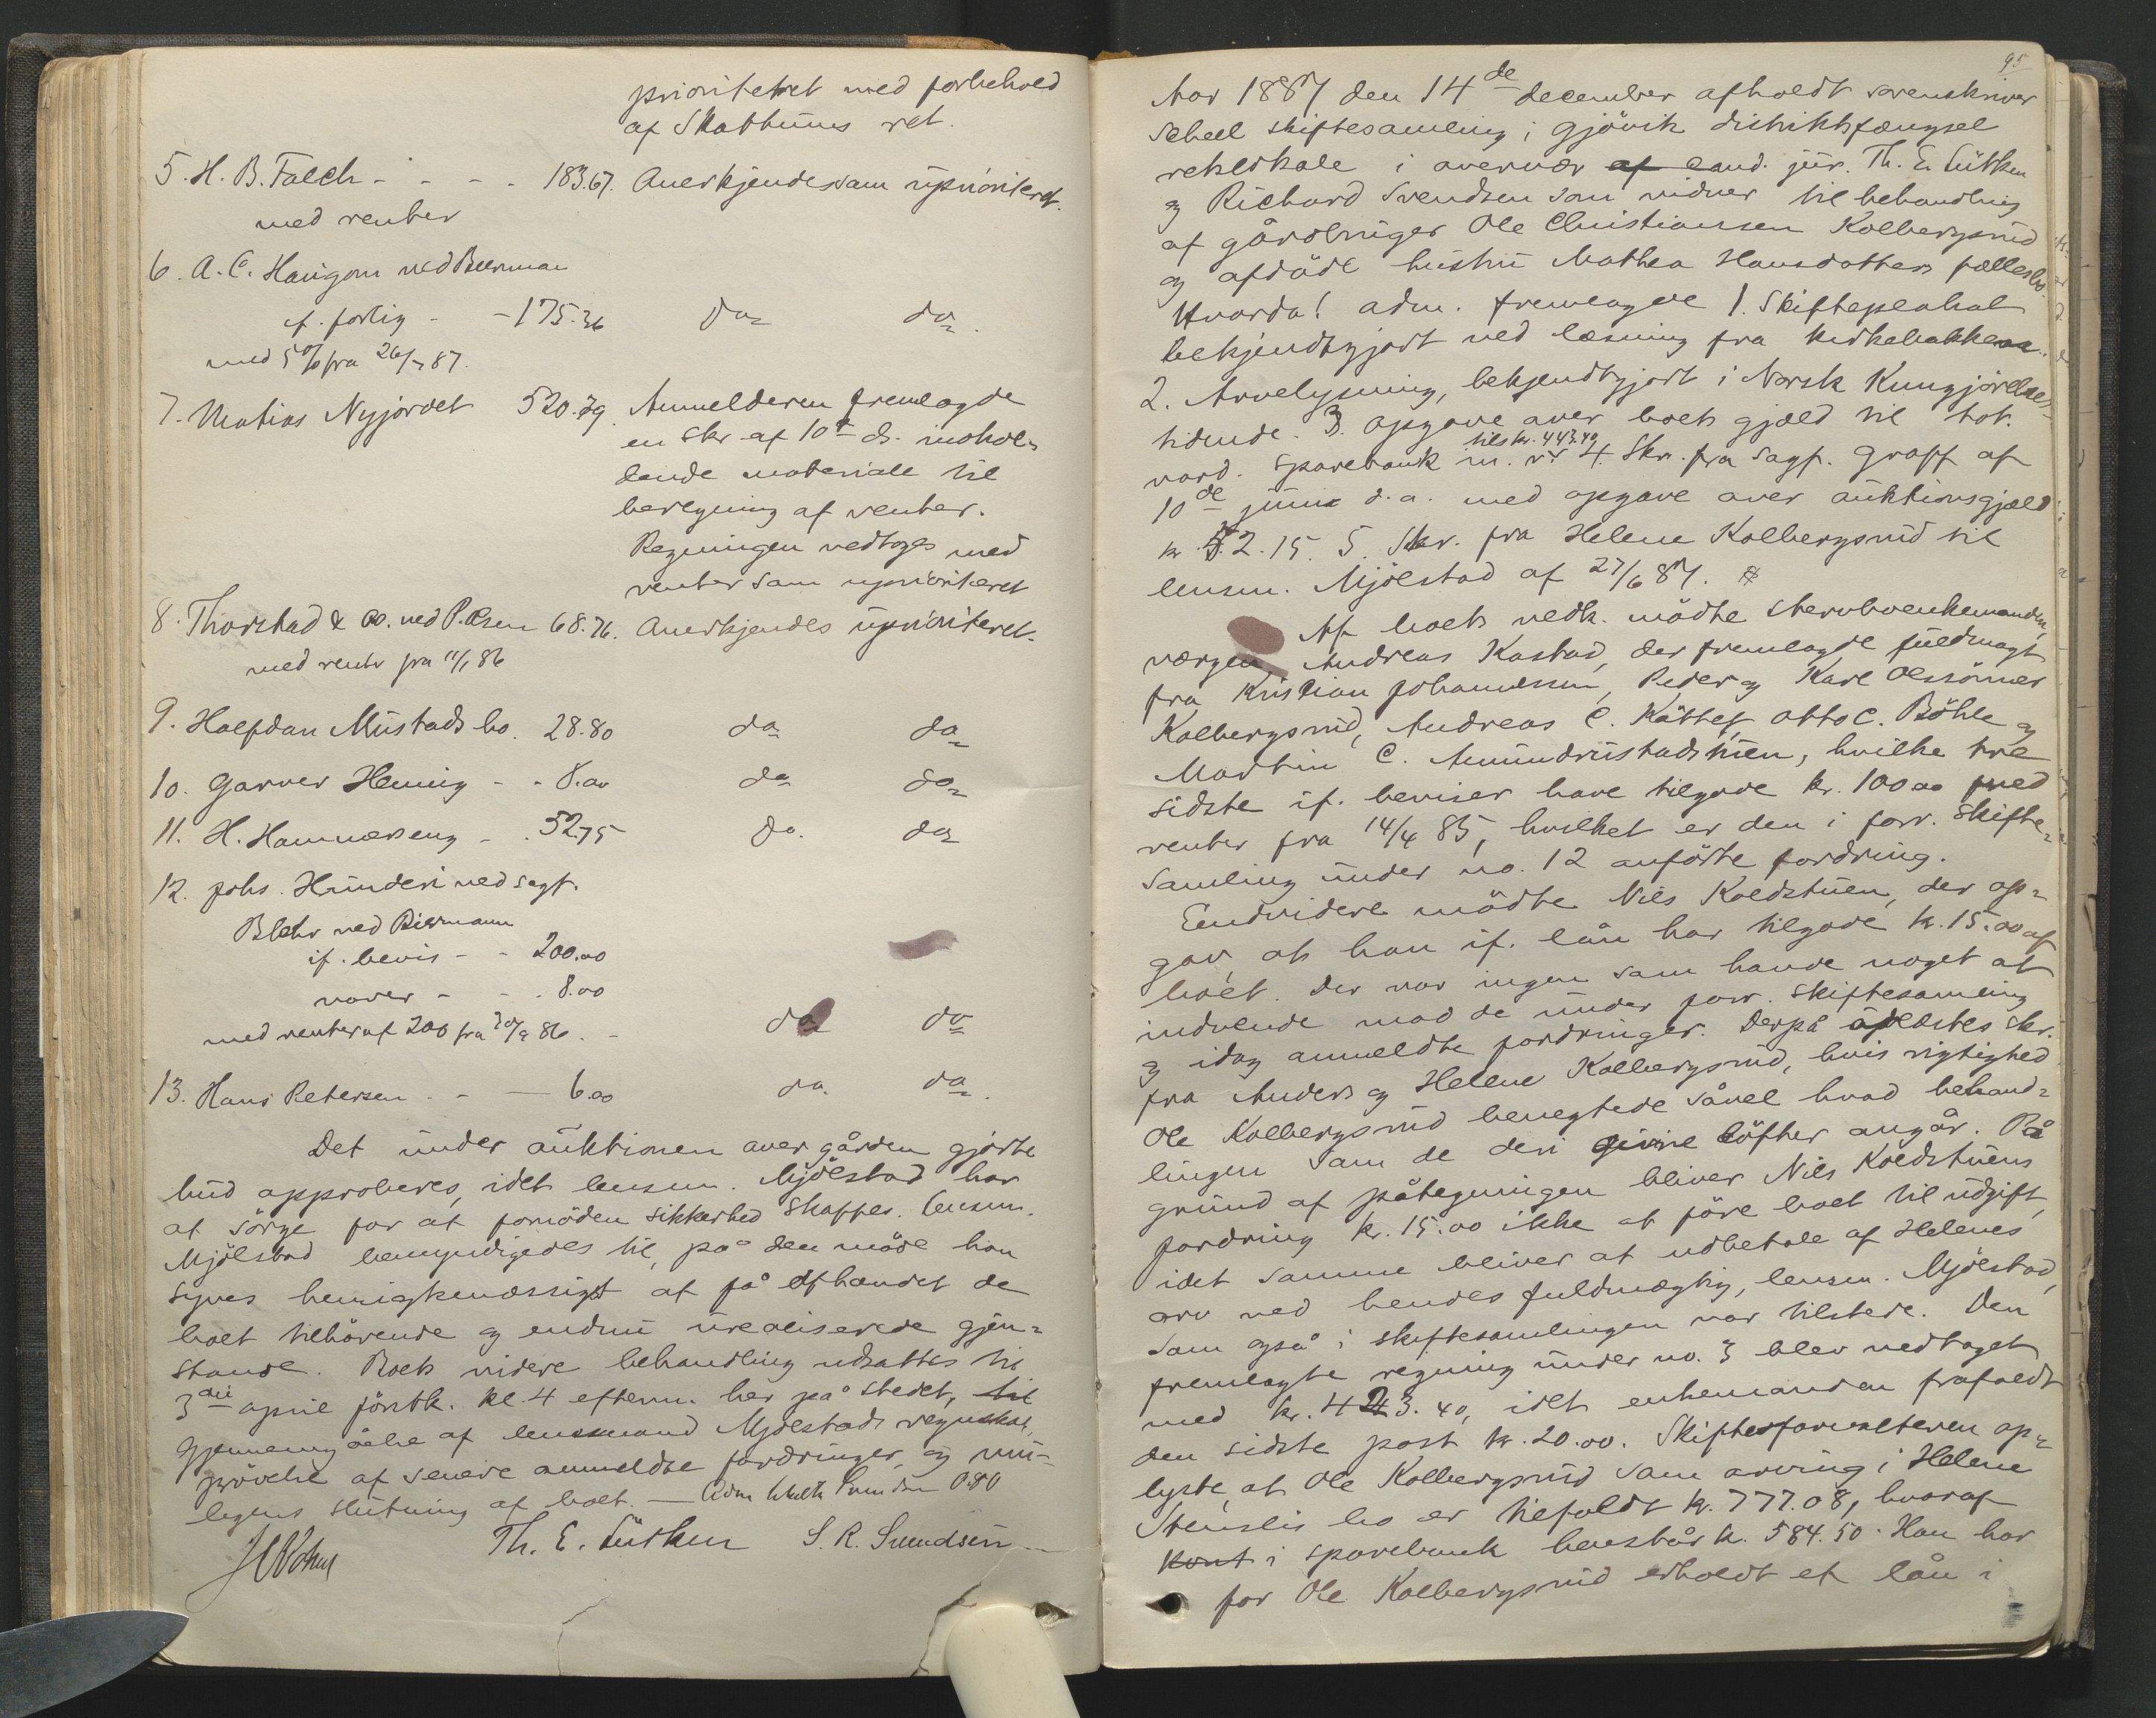 prioritetet med forbehold
af Skatthuus ret.
5. H. B. Falch - - - - 183.67. Anerkjendes som uprioriteret.
med renter
6. A. C. Haugom ved Beerman
if. forlig - - 175.36 do do.
med 5 % fra 26/7 87.
7. Matias Nyjordet 520.79. Anmelderen fremlagde
en Skr. af 10de ds. indehol-
dende materiale til
beregning af renter.
Regningen vedtoges med
renter som uprioriteret
8. Thorstad & Co. ved P. Olsen 68.76. Anerkjendes uprioriteret.
med rente fra 11/1 86
9. Halfdan Mustads bo. 28.80 do do
10. Garver Hennig - - 8.00 do do
11. H. Hamnæseng - . 52.75 do. do
12. Johs. Hunderi ved sagf.
Blehr ved Biermann
if. bevis - - 200.00
varer - - - 8.00
med renter af 200 fra 20/9 86. - do do
13. Hans Petersen - - — 6.00 do. do.
Det under auktionen over gården gjorte
bud approberes, idet lensm. Mjölstad har
at sörge for at fornöden sikkerhed skaffes. Lensm.
Mjölstad bemyndigedes til, på den måde han
synes hensigtsmæssigst at få afhændet de
boet tilhörende og endnu urealiserede gjen-
stande. Boets videre behandling udsattes til
3die april förstk. kl. 4 efterm. her på stedet, til
gjennemgåelse af lensmand Mjölstads regnskab,
prövelse af senere anmeldte fordringer, og mu-
ligens slutning af boet. — 0.80
Th. E. Lütken S. R. Svendsen
95
Aar 1887 den 14de december afholdt sorenskriver
Scheel skiftesamling i Gjövik distriktsfængsel
retslokale i overvær af cand. jur. Th. E. Lütken
og Richard Svendsen som vidner til behandling
af gårdbruger Ole Christiansen Kolbergsrud
og afdöde hustru Mathea Hansdatters fællesbo.
Hvorda! adm. fremlagde 1. Skifteplakat
bekjendtgjort ved læsning fra kirkebakken.
2. Arvelysning, bekjendtgjort i Norsk Kungjörelses-
tidende. 3. opgave over boets gjæld til tot.
vard. Sparebank m. v. tils kr. 443.40 4. Skr. fra sagf. Graff af
10de juni d.a. med opgave over auktionsgjæld
kr. 52.15. 5. Skr. fra Helene Kolbergsrud til
lensm. Mjölstad af 27/6 87.
Af boets vedk. mödte sterboenkemanden,
værgen Andreas Kastad, der fremlagde fuldmagt
fra Kristian Johannessen, Peder og Karl Olssönner
Kolbergsrud, Andreas C. Kåttet, Otto C. Böhle og
Martin C. Amundrustadstuen, hvilke tre
sidste if. beviser have tilgode kr. 100.00 med
renter fra 14/4 85, hvilket er den i forr. skifte-
samling under no. 12 anförte fordring.
Endvidere mödte Nils Koldstuen, der op-
gav, at han if. lån har tilgode kr. 15.00 af
boet. Der var ingen som havde noget at
indvende mod de under forr. skiftesamling
og idag anmeldte fordringer. Derpå oplæstes skr.
fra Anders og Helene Kolbergsrud, hvis rigtighed
Ole Kolbergsrud benegtede såvel hvad behand-
lingen som de deri givne löfter angår. På
grund af påtegningen bliver Nils Koldstuens
fordring kr. 15.00 ikke at före boet til udgift,
idet samme bliver at udbetale af Helenes
arv ved hendes fuldmægtig, lensm. Mjölstad,
som også i skiftesamlingen var tilstede. Den
fremlagte regning under no. 3 blev vedtaget
med kr. 423.40, idet enkemanden frafaldt
den sidste post kr. 20.00. Skifteforvalteren op-
lyste, at Ole Kolbergsrud som arving i Helene
Stenslis bo er tilfaldt kr. 777.08, hvoraf
kont i sparebank henstår kr. 584.50. Han har
for Ole Kolbergsrud erholdt et lån i